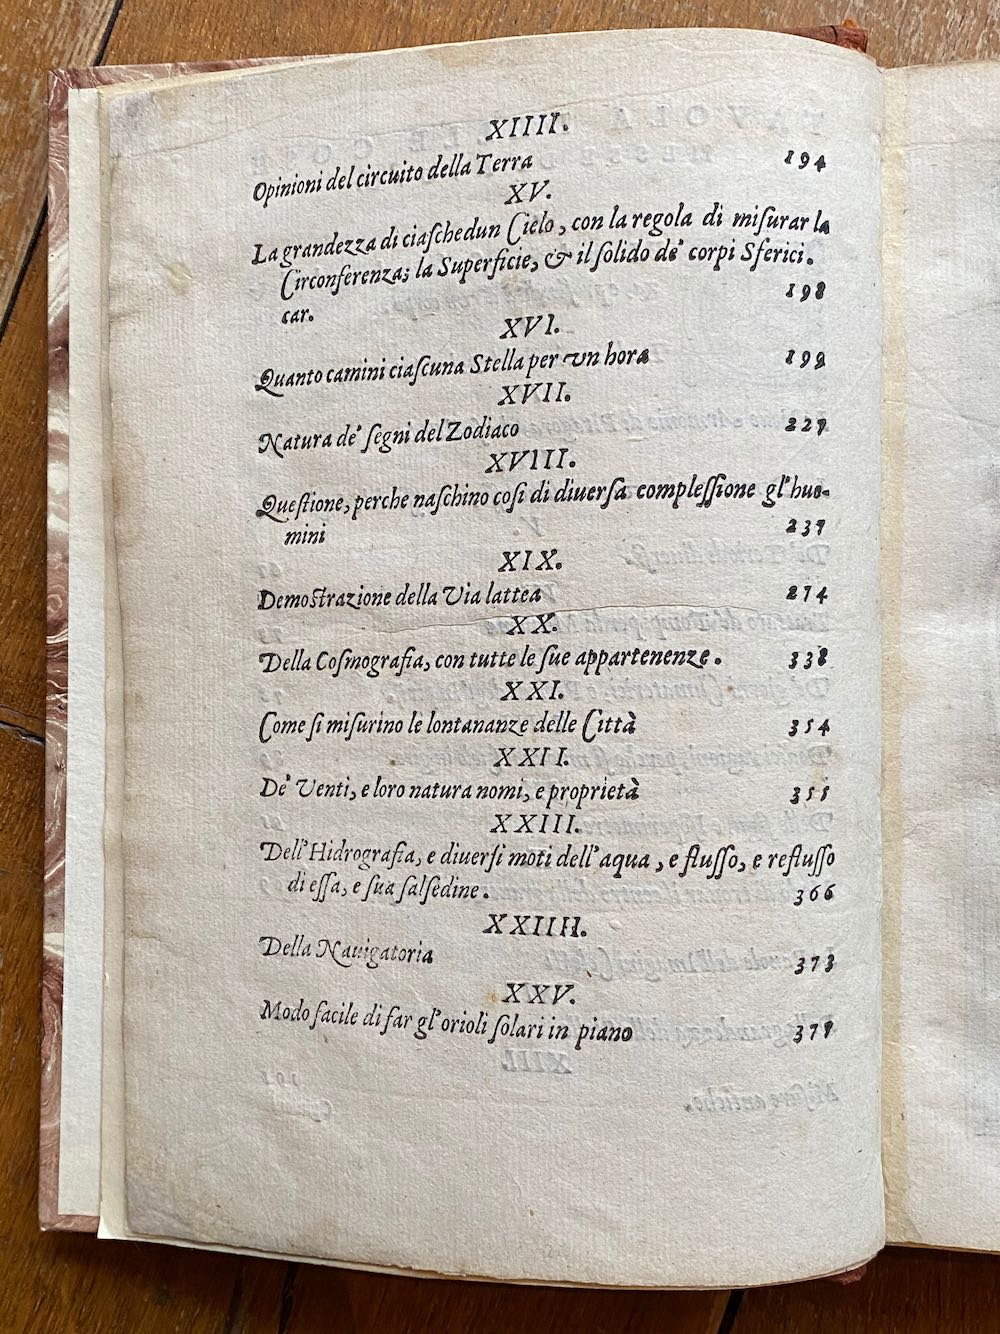 XIIII.
Opinioni del circuito della Terra 194
XV.
La grandezza di ciaſchedun Cielo, con la regola di miſurar la
Circonferenza; la Superficie, & il ſolido de' corpi Sferici.
car. 198
XVI.
Quanto camini ciaſcuna Stella per vn hora 199
XVII.
Natura de' ſegni del Zodiaco 229
XVIII.
Queſtione, perche naſchino coſi di diuerſa compleſſione gl'huo-
mini 237
XIX.
Demoſtrazione della Via lattea 274
XX.
Della Coſmografia, con tutte le ſue appartenenze. 338
XXI.
Come ſi miſurino le lontananze delle Città 354
XXII.
De' Venti, e loro natura nomi, e proprietà 355
XXIII.
Dell'Hidrografia, e diuerſi moti dell'aqua, e fluſſo, e refluſſo
di eſſa, e ſua ſalſedine. 366
XXIIII.
Della Nauigatoria 373
XXV.
Modo facile di far gl'orioli ſolari in piano 379